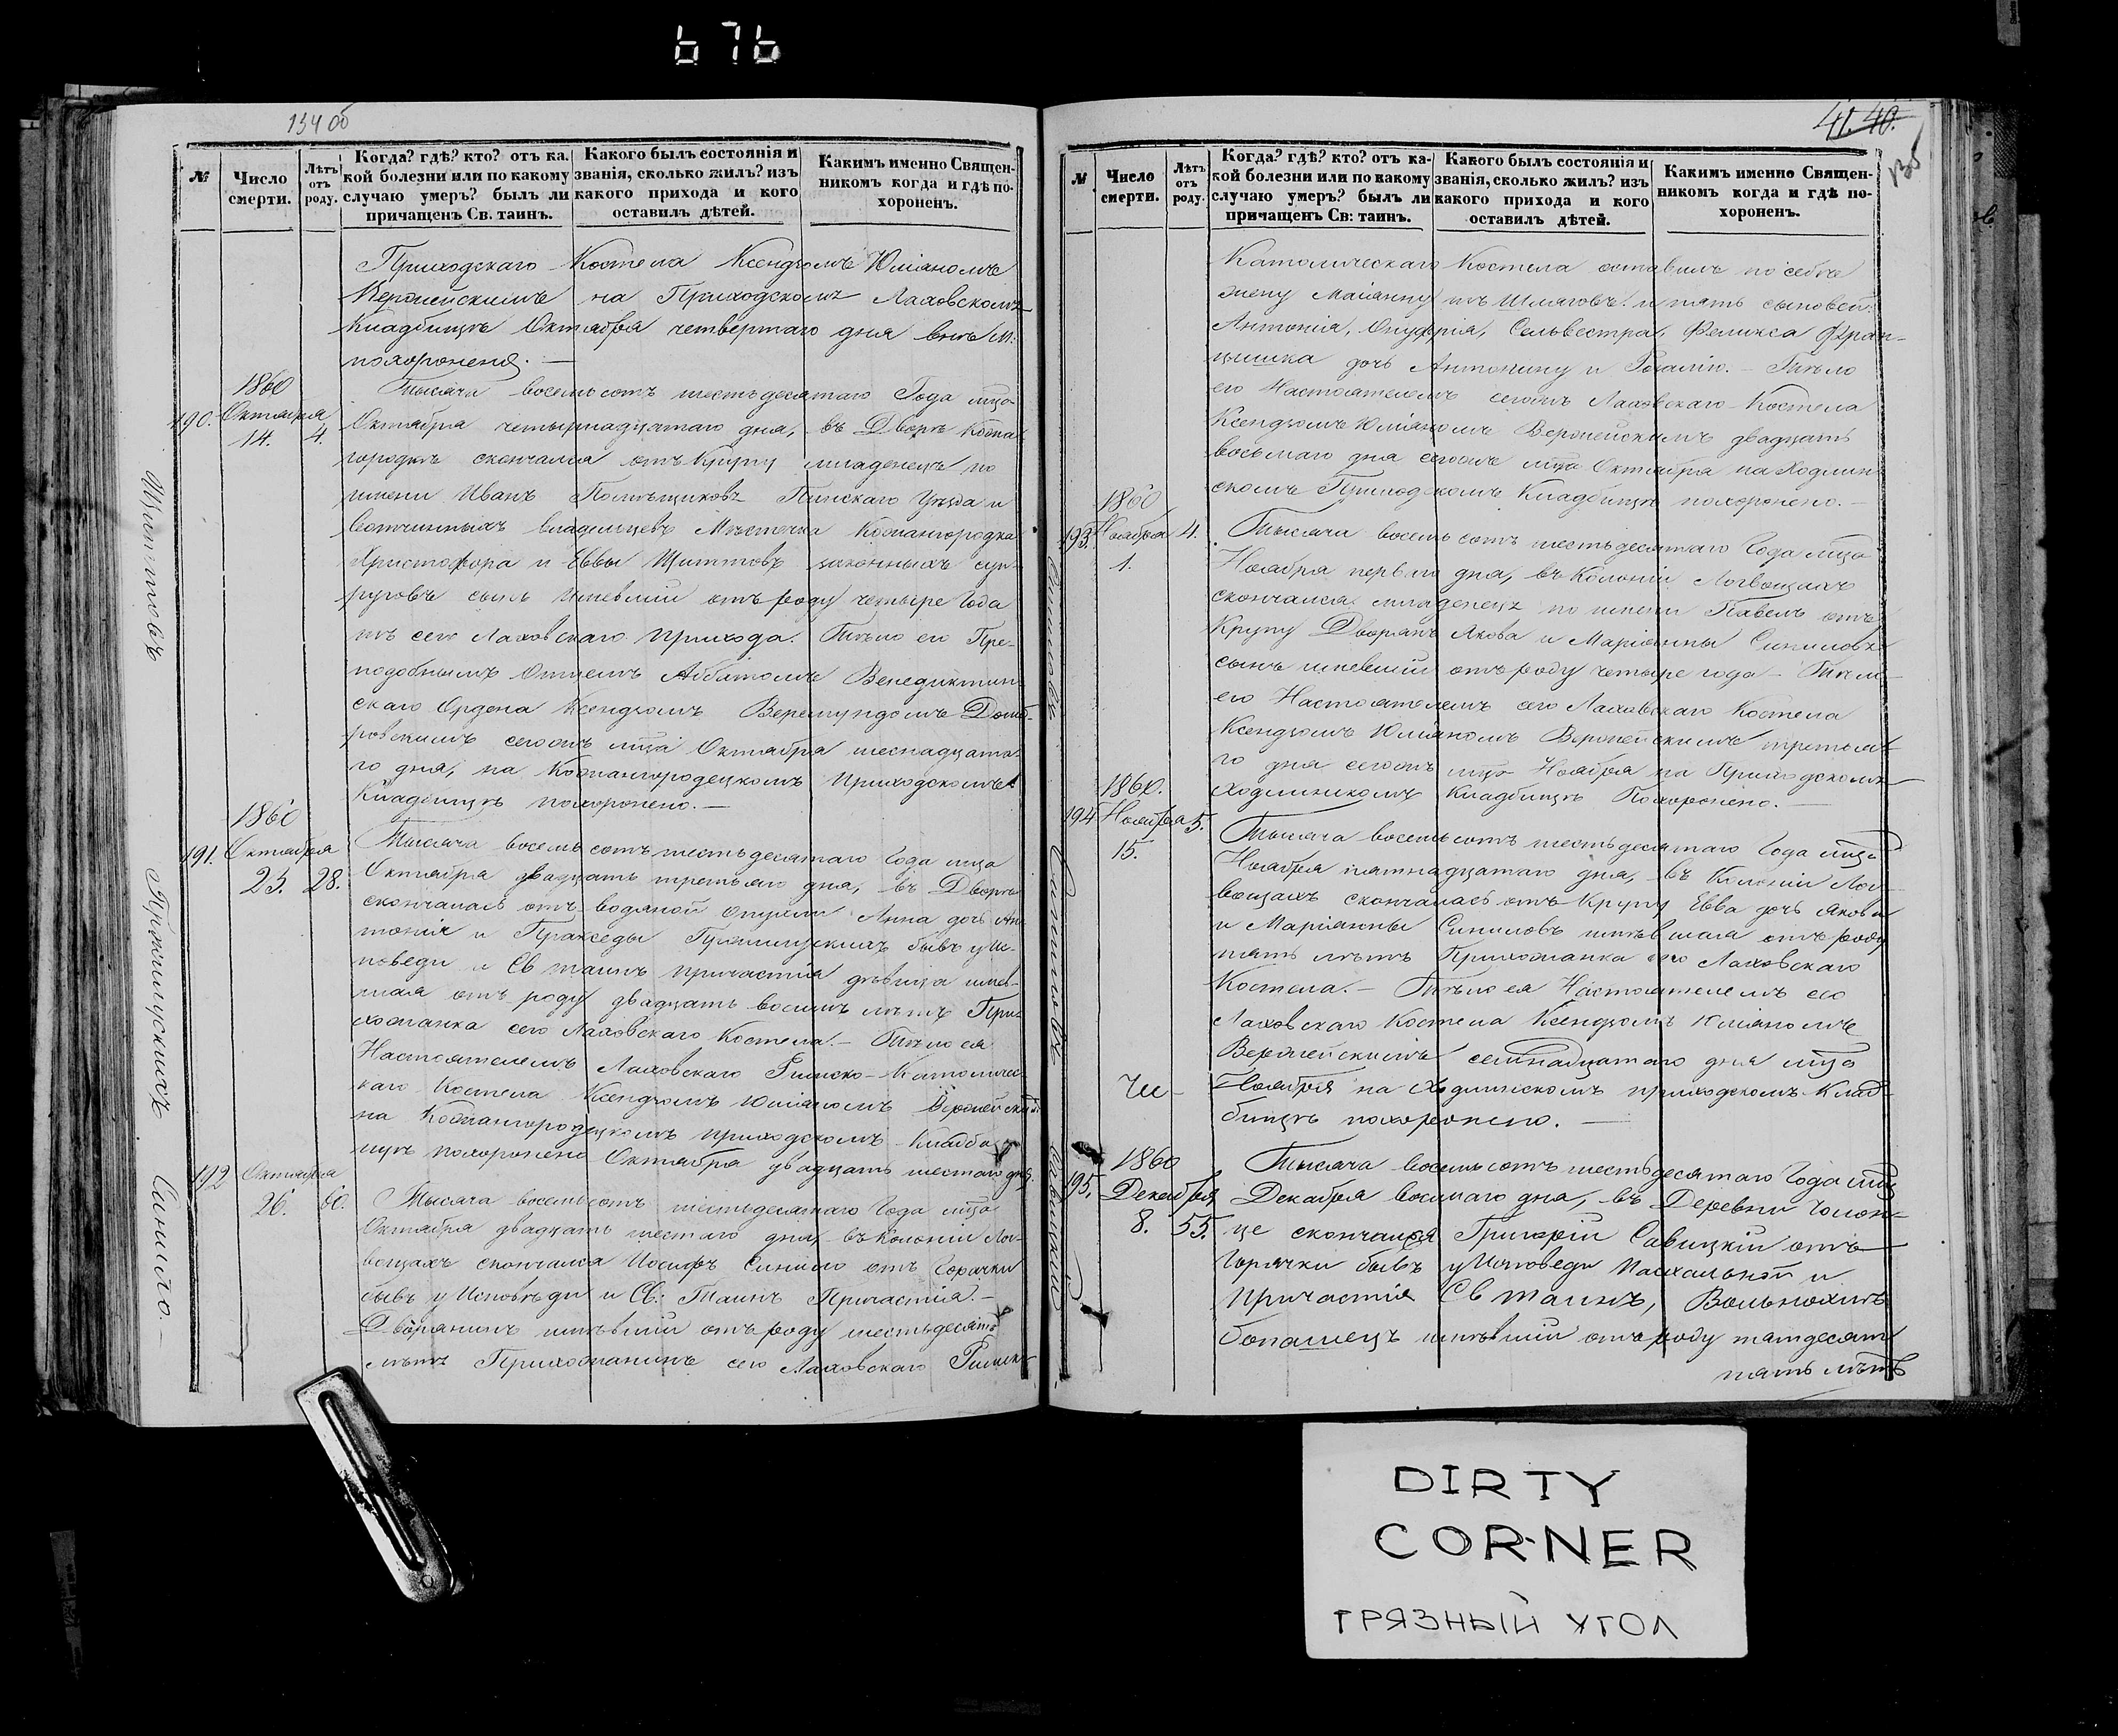 676
134 об
№
Число смерти.
Лѣтъ отъ роду.
Когда? гдѣ? кто? отъ ка-
кой болезни или по какому
случаю умеръ? былъ ли
причащенъ Св. таинъ.
Какого былъ состоянія и
званія, сколько жилъ? изъ
какого прихода и кого
оставилъ дѣтей.
Какимъ именно Священ-
никомъ когда и гдѣ по-
хороненъ.
Приходскаго Костела Ксендзомъ Юліяномъ
на Приходскомъ Лаховскомъ
Кладбищѣ Октября четвертаго дня
похоронена. —
1860
190. Октября
14. 4.
Тысяча восемьсотъ шестьдесятаго Года мца
Октября четырнадцатаго дня, въ Дворѣ Кожан
городкѣ скончался отъ Крупу младенецъ по
имени Иванъ Помѣщиковъ Пинскаго Уѣзда и
вотчинныхъ владельцевъ Мѣстечка Кожангородка
Христофора и Еввы Щиттовъ законныхъ суп-
руговъ сынъ имевшій отъ роду четыре года
изъ сего Лаховскаго прихода. Тѣло его Пре-
подобнымъ Отцемъ Аббатомъ Бенедиктин-
скаго Ордена Ксендзомъ Веремундомъ Домб-
ровскимъ сегожъ мца Октября шеснадцата-
го дня, на Кожангородецкомъ приходскомъ
Кладбищѣ похоронено. —
Щиттовъ
1860
191. Октября
23. 28.
Тысяча восемьсотъ шестьдесятаго Года мца
Октября двадцать третьяго дня, въ Дворѣ
скончалась отъ водяной опухли Анна дочь Ан-
тонія и Пракседы бывъ у Ис-
поведи и Св таинъ причастія дѣвица имев-
шая отъ роду двадцать восемь лѣтъ При-
хожанка сего Лаховскаго Костела. — Тѣло ея
Настоятелемъ Лаховскаго Римско-Католичес-
каго Костела Ксендзомъ Юліяномъ
на Кожангородецкомъ приходскомъ Кладби-
щѣ похоронено Октября двадцать шестаго дня.
192 Октября
26. 60.
Тысяча восемьсотъ шестьдесятаго Года мца
Октября двадцать шестаго дня, въ Колоніи Лог-
вощахъ скончался Иосифъ Синило отъ Горячки
бывъ у Исповѣди и Св: Таинъ Причастія. —
Дворянинъ имѣвшій отъ роду шестьдесятъ
лѣтъ Прихожанинъ сего Лаховскаго Римско-
Синило.
41. 40.
135
№
Число смерти.
Лѣтъ отъ роду.
Когда? гдѣ? кто? отъ ка-
кой болезни или по какому
случаю умеръ? былъ ли
причащенъ Св: таинъ.
Какого былъ состоянія и
званія, сколько жилъ? изъ
какого прихода и кого
оставилъ дѣтей.
Какимъ именно Священ-
никомъ когда и гдѣ по-
хороненъ.
Католическаго Костела оставилъ по себѣ
жену Маіанну изъ Шляговъ. и пять сыновей:
Антонія, Онуфрія, Сельвестра, Феликса Фран-
цишка дочь Антонину и Розалію. — Тѣло
его Настоятелемъ сегожъ Лаховскаго Костела
Ксендзомъ Юліяномъ двадцать
восьмаго дня сегожъ мца Октября на Ходлин-
скомъ Приходскомъ Кладбищѣ похоронено. —
1860
193. Ноября 4.
1.
Тысяча восемьсотъ шестьдесятаго Года мца
Ноября перваго дня, въ Колоніи Логвощахъ
скончался младенецъ по имени Павелъ отъ
Крупу Дворянъ Якова и Маріянны Синиловъ
сынъ имевшій отъ роду четыре года — Тѣло
его Настоятелемъ сего Лаховскаго Костела
Ксендзомъ Юліяномъ третья-
го дня сегожъ мца Ноября на Приходскомъ
Ходлинскомъ Кладбищѣ Похоронено. —
Синиловъ
1860.
194 Ноября 5.
15.
Тысяча восемьсотъ шестьдесятаго Года мца
Ноября пятнадцатаго дня, въ Колоніи Лог-
вощахъ скончалась отъ Крупу Евва дочь Якова
и Маріянны Синиловъ имѣвшая отъ роду
пять лѣтъ Прихожанка сего Лаховскаго
Костела. — Тѣло ея Настоятелемъ его
Лаховскаго Костела Ксендзомъ Юліяномъ
семнадцатаго дня мца
Ноября на Ходлинскомъ приходскомъ Клад-
бищѣ похоронено. —
Синиловъ
1860
195. Декабря
8. 55.
Тысяча восемьсотъ шестьдесятаго Года мца
Декабря восмаго дня, въ Деревни Голон-
це скончался Григорій Савицкій отъ
Горячки бывъ у Исповеди Пасхальной и
Причастія Св таинъ,
имѣвшій отъ роду пятдесятъ
пять лѣтъ
Савицкій
DIRTY
CORNER
ГРЯЗНЫЙ УГОЛ